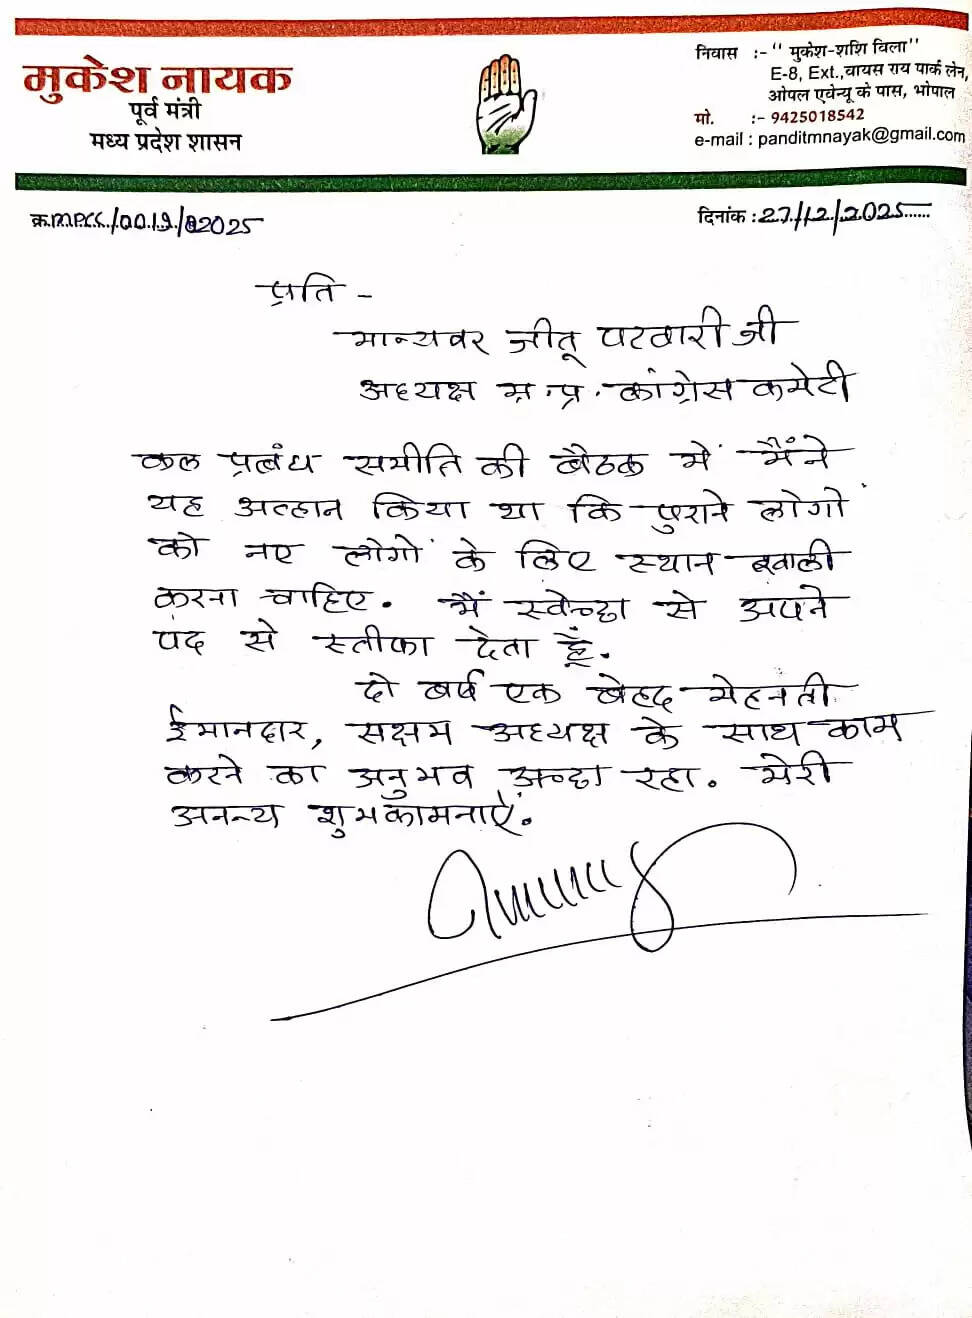 मुकेश नायक
पूर्व मंत्री
मध्य प्रदेश शासन
निवास :- "मुकेश-शशि विला"
E-8, Ext.,वायस राय पार्क लेन,
ओपल एवेन्यू के पास, भोपाल
मो. :- 9425018542
e-mail : panditmnayak@gmail.com
क्र.m.p.c.c./0019/2025
दिनांक :27/12/2025......
प्रति -
मान्यवर जीतू पटवारी जी
अध्यक्ष म.प्र. कांग्रेस कमेटी
कल प्रबंध समीति की बैठक में मैंने
यह अव्हान किया था कि पुराने लोगों
को नए लोगों के लिए स्थान खाली
करना चाहिए. मैं स्वेच्छा से अपने
पद से स्तीफा देता हूँ.
दो बर्ष एक बेहद मेहनती
ईमानदार, सक्षम अध्यक्ष के साथ काम
करने का अनुभव अच्छा रहा. मेरी
अनन्य शुभकामनाऐं.